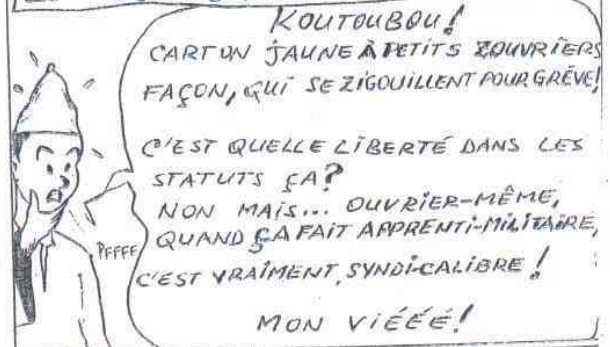 KOUTOUBOU!
CARTON JAUNE À PETITS ZOUVRIERS
FAÇON, QUI SE ZIGOUILLENT POUR GRÈVE!
C'EST QUELLE LIBERTÉ DANS LES
STATUTS ÇA?
NON MAIS... OUVRIER-MÊME,
QUAND ÇA FAIT APPRENTI-MILITAIRE,
C'EST VRAIMENT, SYNDI-CALIBRE!
MON VIÉÉÉ!
PFFFF